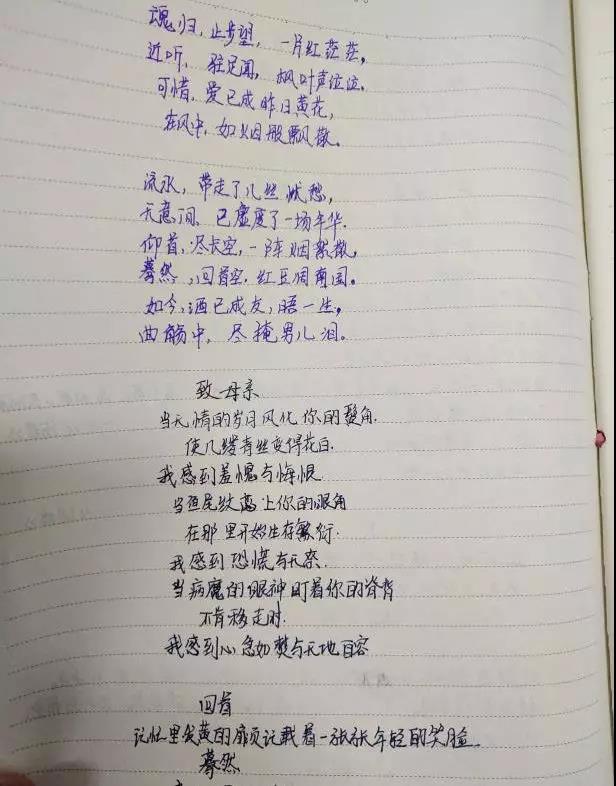 魂归，止步望，一片红茫茫，
近听，驻足闻，枫叶声泣泣。
可惜，爱已成昨日黄花，
在风中，如烟般飘散。
流水，带走了几丝忧愁，
无意间，已虚度了一场年华.
仰首，尽长空，一阵烟絮散，
蓦然，回首空，红豆凋南国。
如今，酒已成友，醅一生，
曲觞中，尽掩男儿泪。
致母亲
当无情的岁月风化你的鬓角.
使几缕青丝变得花白.
我感到羞愧与悔恨
当鱼尾纹爬上你的眼角
在那里开始生存繁衍.
我感到恐慌与无奈.
当病魔的眼神盯着你的脊背
不肯移走时.
我感到心急如焚与无地自容
回首
记忆里发黄的扉页记载着一张张年轻的笑脸
蓦然